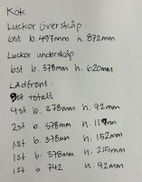 Kök
Luckor överskåp:
6st b. 497mm h. 872mm
Luckor underskåp
6st b. 378mm h. 620mm
Lådfront:
9st totalt
4st b. 378mm h. 92mm
2st b. 378mm h. 119mm
1st b. 378mm h. 152mm
1st b. 378mm h. 215mm
1st b. 742 h. 92mm